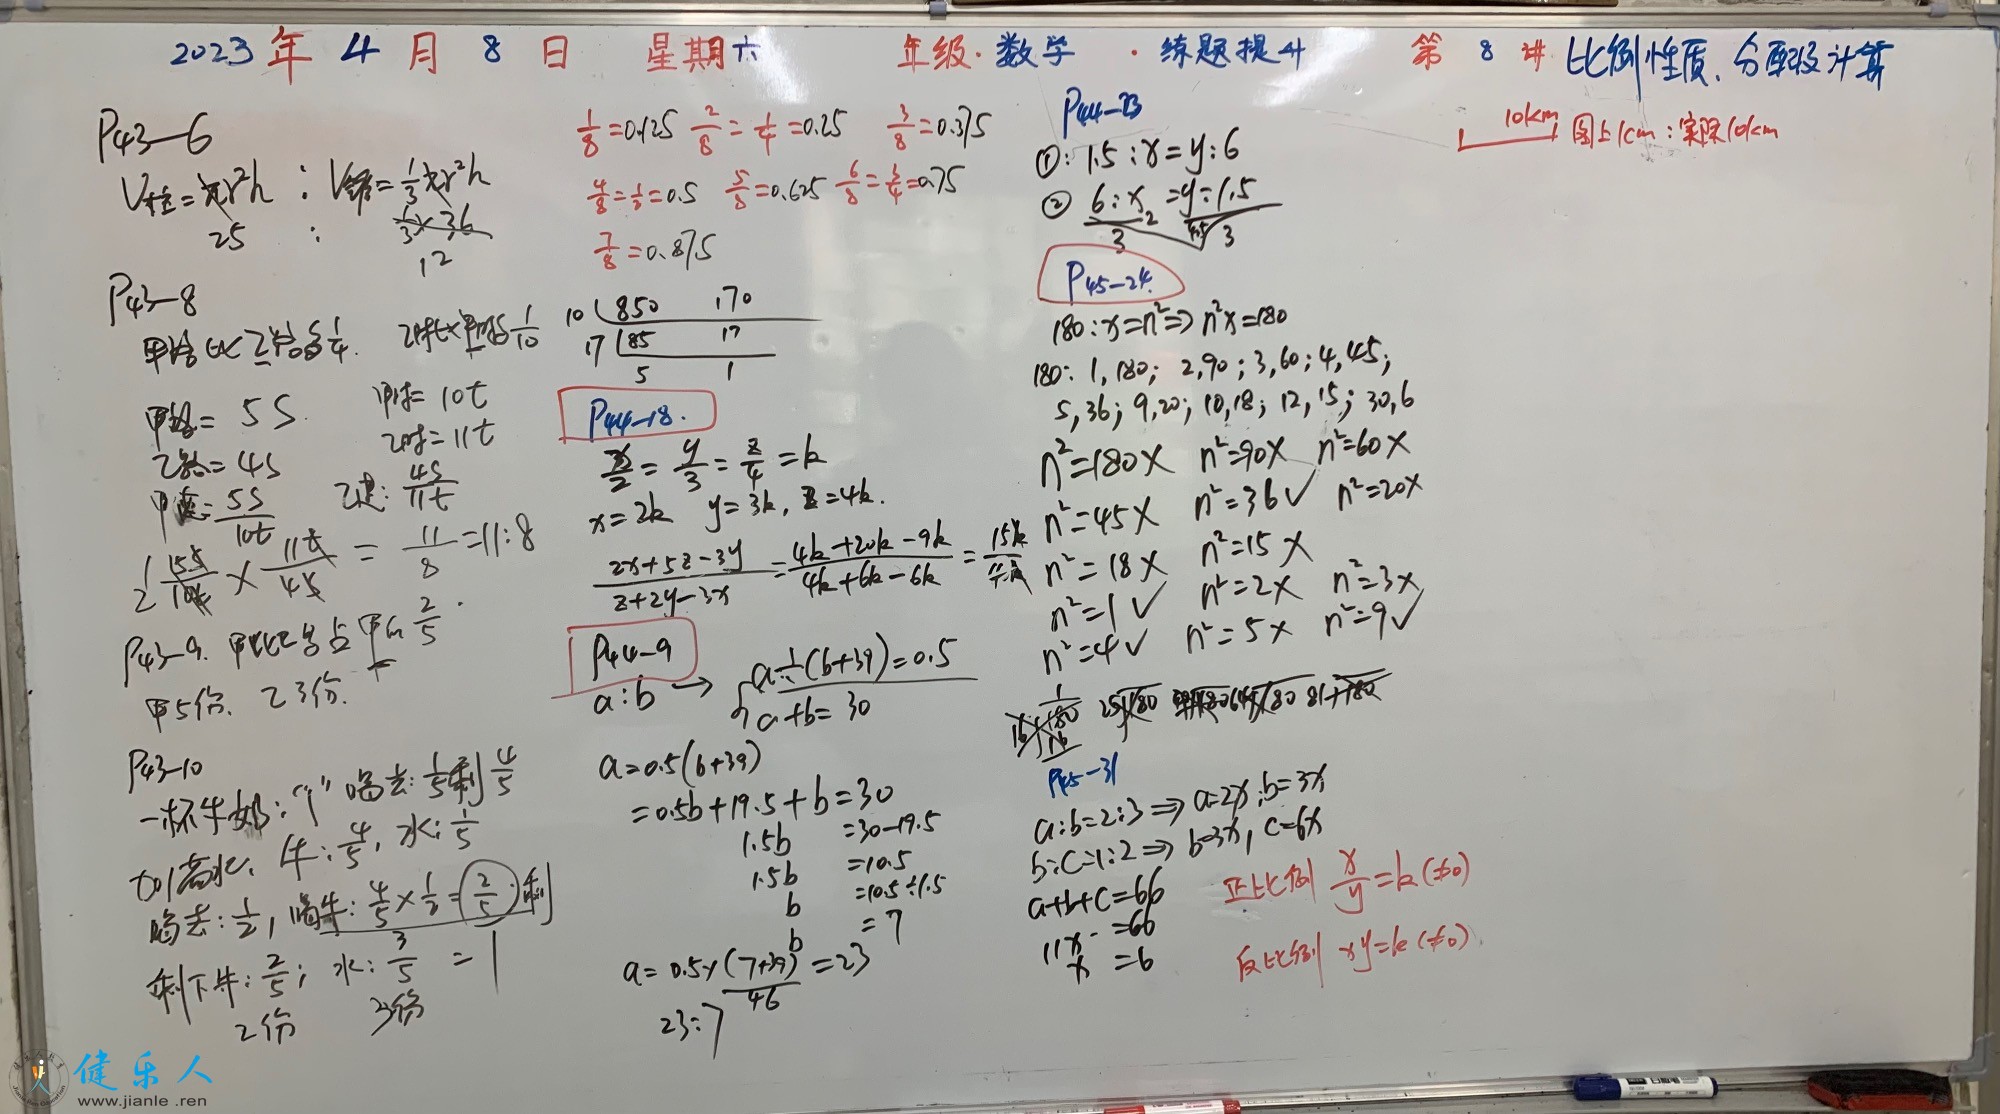 2023年4月8日 星期六 年级·数学·练题提升 第8讲 比例性质、分配及计算
P43-6
V柱=πr²h : V锥=1/3πr²h
25 : 1/3×36
12
P43-8
甲路比乙路多1/4. 乙时比甲时多1/10
甲路=5S. 甲时=10t
乙路=4S 乙时=11t
甲速=5S/10t 乙速:4S/11t
5S/10t×11t/4S=11/8=11:8
P43-9.
甲5份、乙3份.
P43-10
一杯牛奶:"1" 喝去:1/5剩4/5
加满水, 牛:4/5, 水:1/5
喝去:1/2, 喝牛:4/5×1/2=2/5:剩
剩下牛:2/5; 水:3/5 =1
2份 3份
1/8=0.125 2/8=1/4=0.25 3/8=0.375
4/8=1/2=0.5 5/8=0.625 6/8=3/4=0.75
7/8=0.875
10 850 170
17 85 17
5 1
P44-18.
x/2=y/3=z/4=k
x=2k y=3k, z=4k.
(2x+5z-3y)/(z+2y-3x)=(4k+20k-9k)/(4k+6k-6k)=15k/4k
P44-9
a:b → a÷(b+39)=0.5
a+b=30
a=0.5(b+39)
=0.5b+19.5+b=30
1.5b =30-19.5
1.5b =10.5
b =10.5÷1.5
b =7
a=0.5×(7+39)=23
46
23:7
P44-23
①:1.5:x=y:6
② 6:x=y:1.5
2
3 4.5 3
P45-24.
180:x=n²⇒n²x=180
180:1,180; 2,90; 3,60; 4,45;
5,36; 9,20; 10,18; 12,15; 30,6
n²=180× n²=90× n²=60×
n²=45× n²=36✓ n²=20×
n²=18× n²=15×
n²=1✓ n²=2× n²=3×
n²=4✓ n²=5× n²=9✓
P45-31
a:b=2:3⇒a=2x;b=3x
b:c=1:2⇒b=3x, c=6x
a+b+c=66
11x =66
x =6
正比例 x/y=k(≠0)
反比例 xy=k(≠0)
10km 图上1cm:实际10km
健乐人
www.jianle.ren